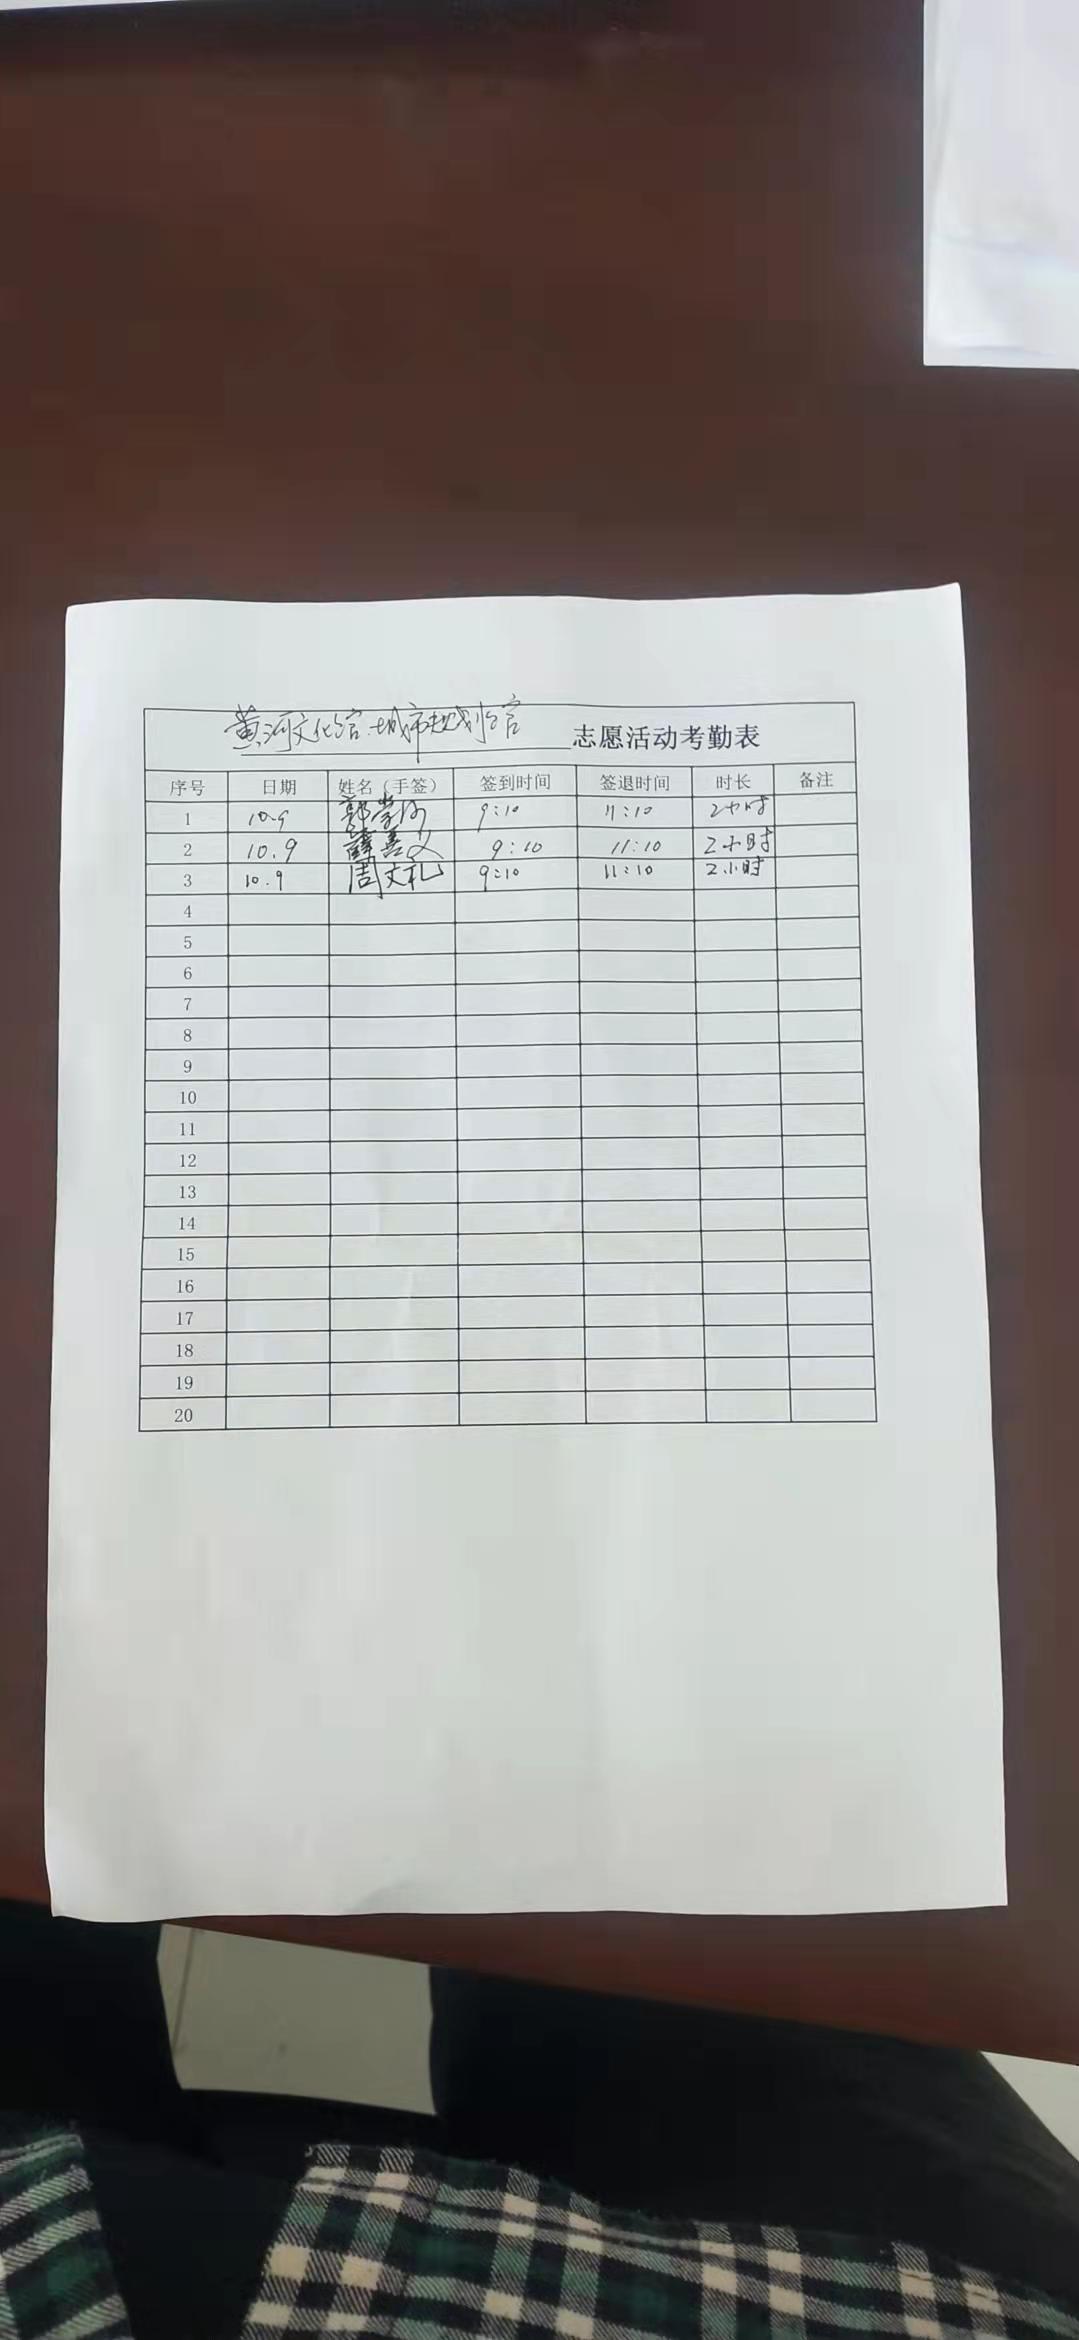 黄河文化馆.城市规划馆 志愿活动考勤表
序号 日期 姓名（手签） 签到时间 签退时间 时长 备注
1 10.9 9:10 11:10 2小时
2 10.9 薛喜文 9:10 11:10 2小时
3 10.9 周文礼 9:10 11:10 2小时
4
5
6
7
8
9
10
11
12
13
14
15
16
17
18
19
20